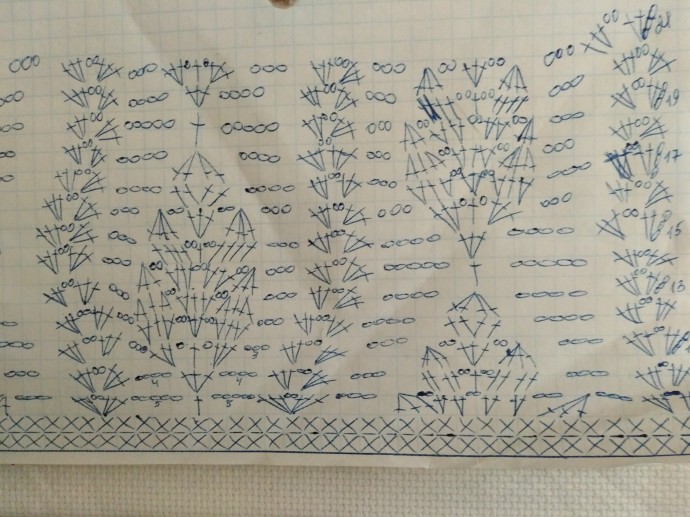 21
19
17
15
13
3
4 4
5 5